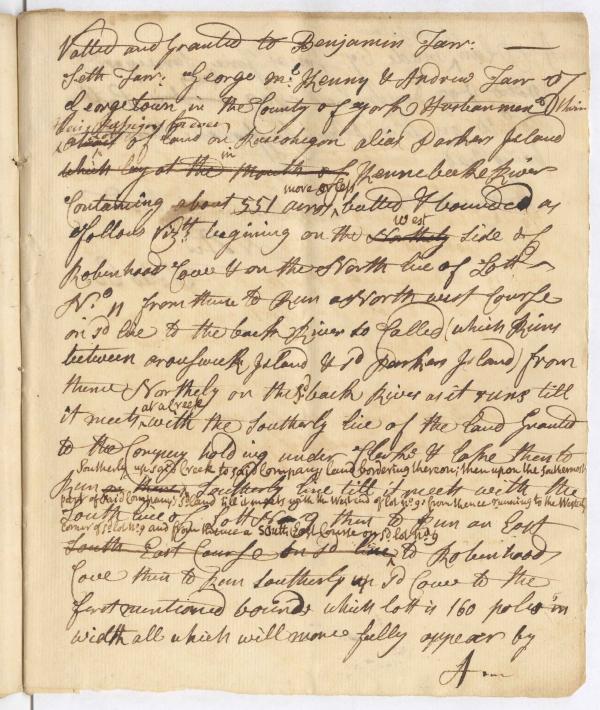 Voted and Granted to Benjamin Farr.
Seth Farr. George mc. Kenny & Andrew Farr of
Georgetown, in the County of York Husbandmen
Heirs Assigns forever
of land on Rascohegon alias Parkers Island
which lay at the in mouth of Kennebecke River
more or less
Containing about 551 acres, butted & bounded as
west
follows Vizt. begining on the Northely side of
Robinhoods Cove & on the North line of Lott
No. 11 from thence to Run a North west Course
on sd. line to the back River so Called (which Runs
between arowswick Island & sd. Parkers Island) from
thence Northely on the sd. back River as it runs till
at a Creek
it meets with the Southerly line of the Land Granted
to the Company holding under Clark & Lake then to
Southerly up said Creek to said Company Land bordering thereon; then upon the Southermost
Run on then a Southerly line till it meets with the
part of said Company's sd. land till it meets with the West end of lot No. 9: from thence running to the
South line of Lott No. 9 then to Run an East
corner of sd. lot No. 9 and from thence a South East Course on sd. lot No. 9
South East Course on sd. line to Robinhoods
Cove then to Run Southerly up sd. Cove to the
first mentioned bounds which lott is 160 poles in
width all which will more fully appear by
A